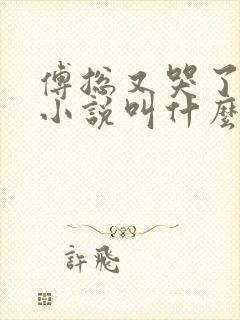 傅總又哭了
小說叫什麼
許飛